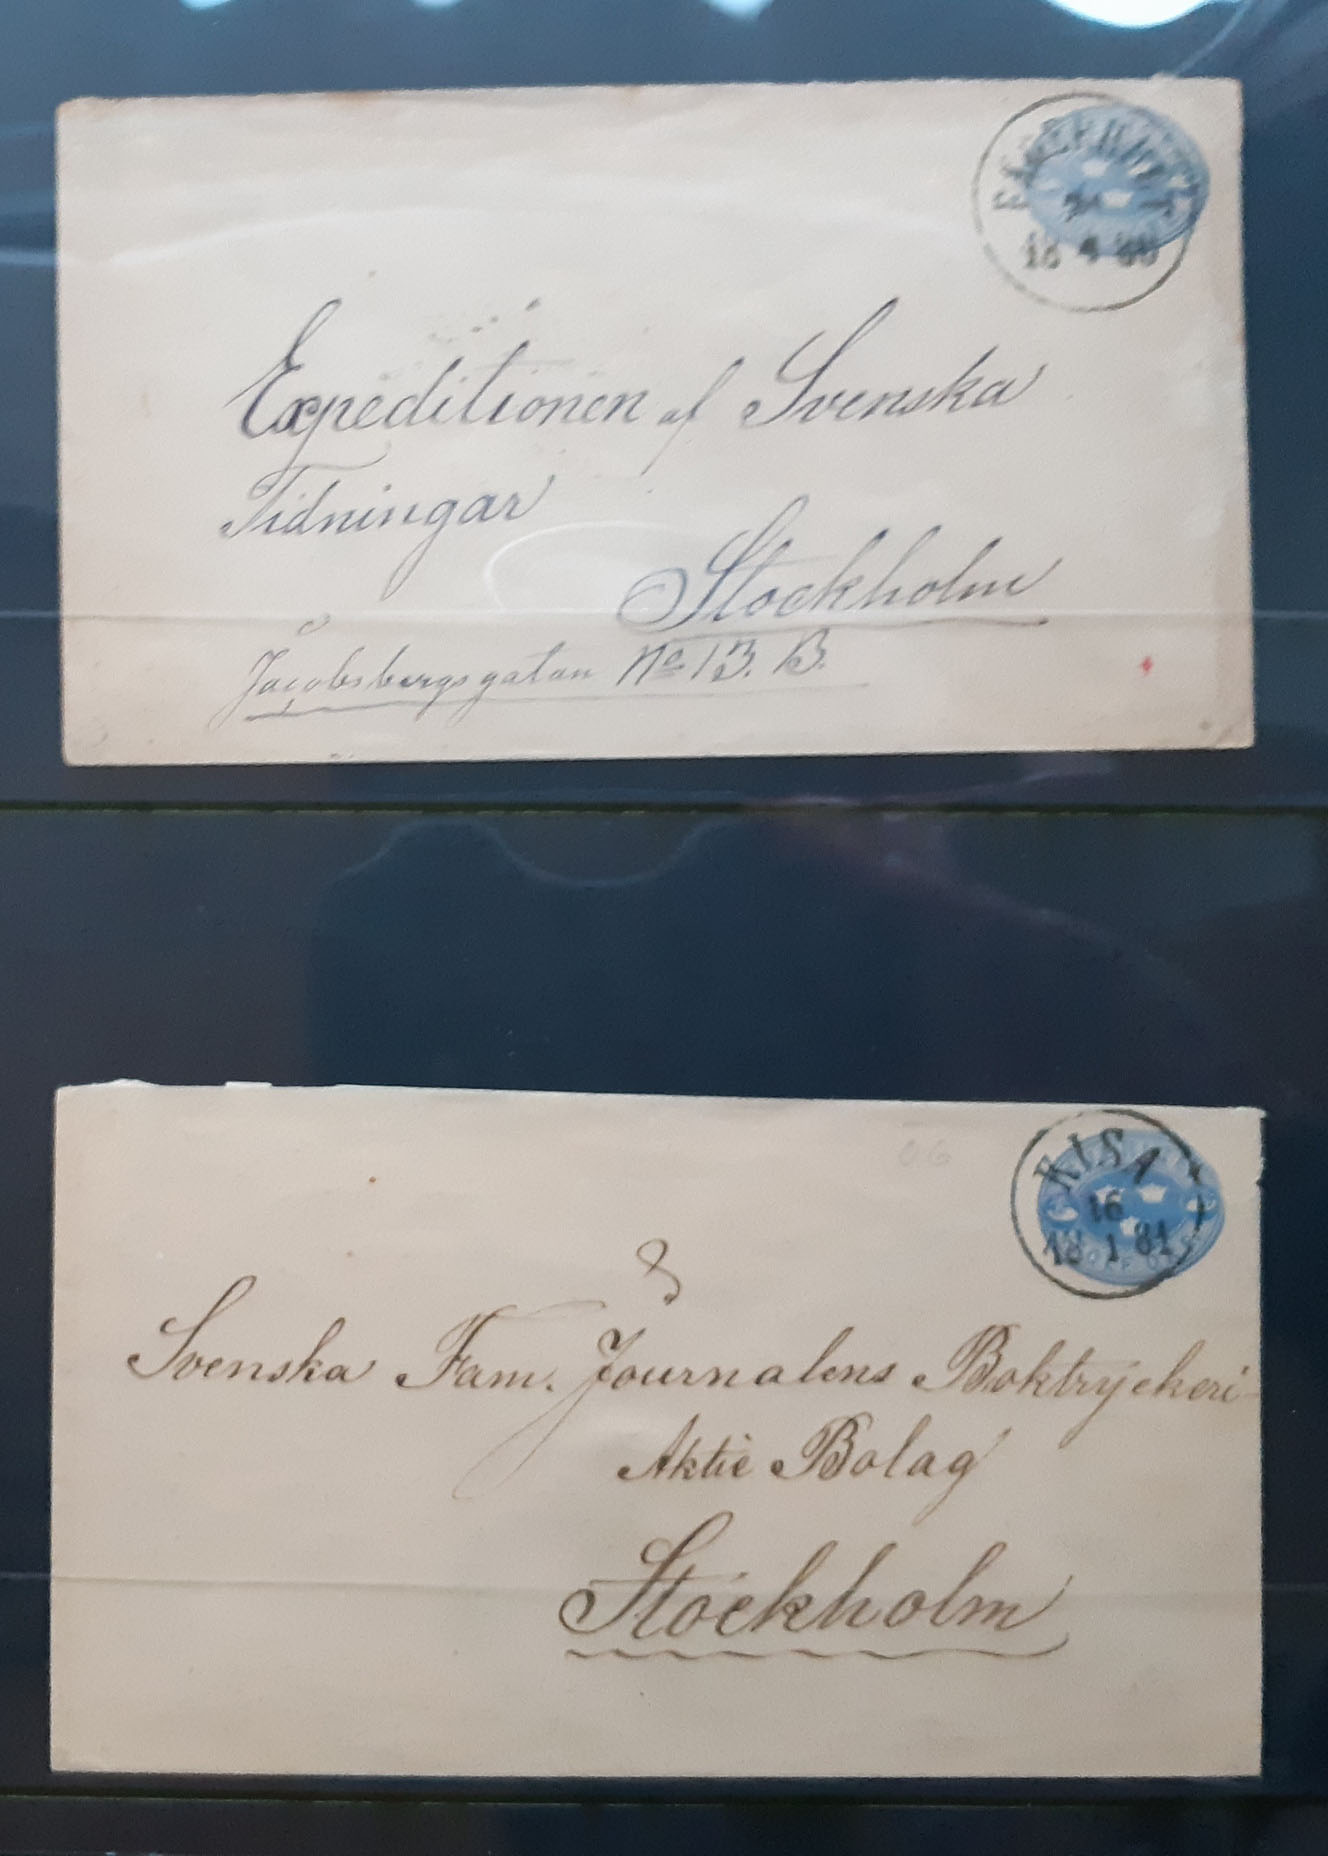 18 4 80
Expeditionen af Svenska
Tidningar
Stockholm
Jacobsbergsgatan No 13. B.
KISA
16
18 1 81
Svenska Fam. Journalens Boktryckeri-
Aktie Bolag
Stockholm